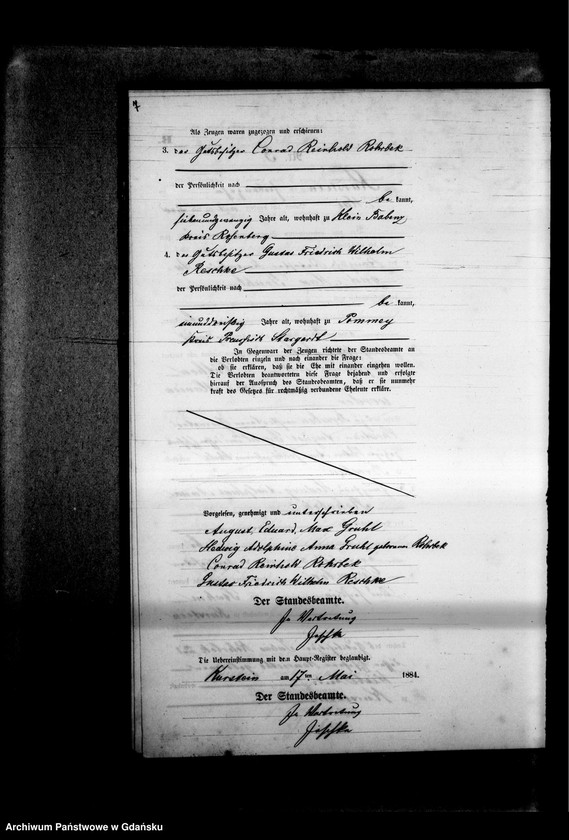 Als Zeugen waren zugezogen und erschienen:
3. der Gutsbesitzer Conrad Reinhold Rohrbek
der Persönlichkeit nach
be kannt,
siebenundzwanzig Jahre alt, wohnhaft zu Klein
Kreis Rosenberg
4. der Gutsbesitzer Gustav Friedrich Wilhelm
Reschke
der Persönlichkeit nach
be kannt,
einunddreißig Jahre alt, wohnhaft zu Pommey
Kreis Preußisch Stargardt
In Gegenwart der Zeugen richtete der Standesbeamte an
die Verlobten einzeln und nach einander die Frage:
ob sie erklären, daß sie die Ehe mit einander eingehen wollen.
Die Verlobten beantworteten diese Frage bejahend und erfolgte
hierauf der Ausspruch des Standesbeamten, daß er sie nunmehr
kraft des Gesetzes für rechtmäßig verbundene Eheleute erkläre.
Vorgelesen, genehmigt und unterschrieben
August Eduard Max Gruhl
Hedwig Adolphine Anna Gruhl geborene Rohrbek
Conrad Reinhold Rohrbek
Gustav Friedrich Wilhelm Reschke
Der Standesbeamte.
In Vertretung
Die Uebereinstimmung mit dem Haupt-Register beglaubigt.
am 17ten Mai 1884.
Der Standesbeamte.
In Vertretung
Archiwum Państwowe w Gdańsku